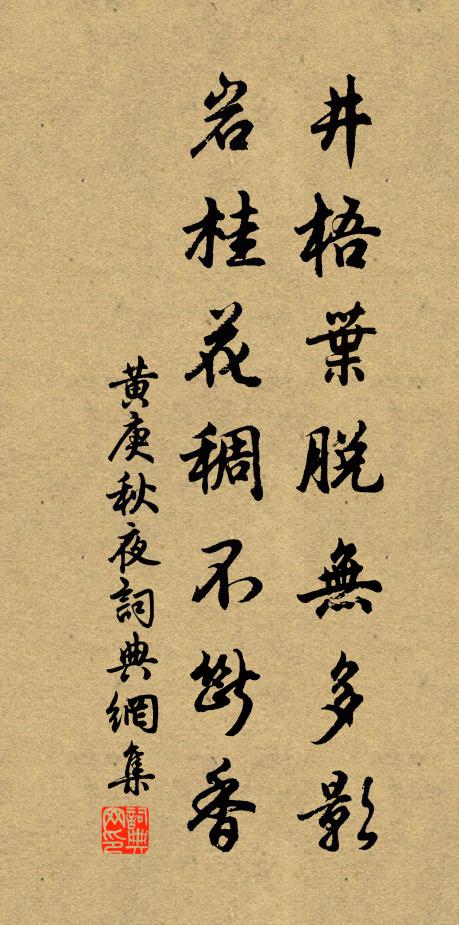 井梧葉脫無多影
岩桂花稠不斷香
黄庚秋夜詞典網集
詞典网印